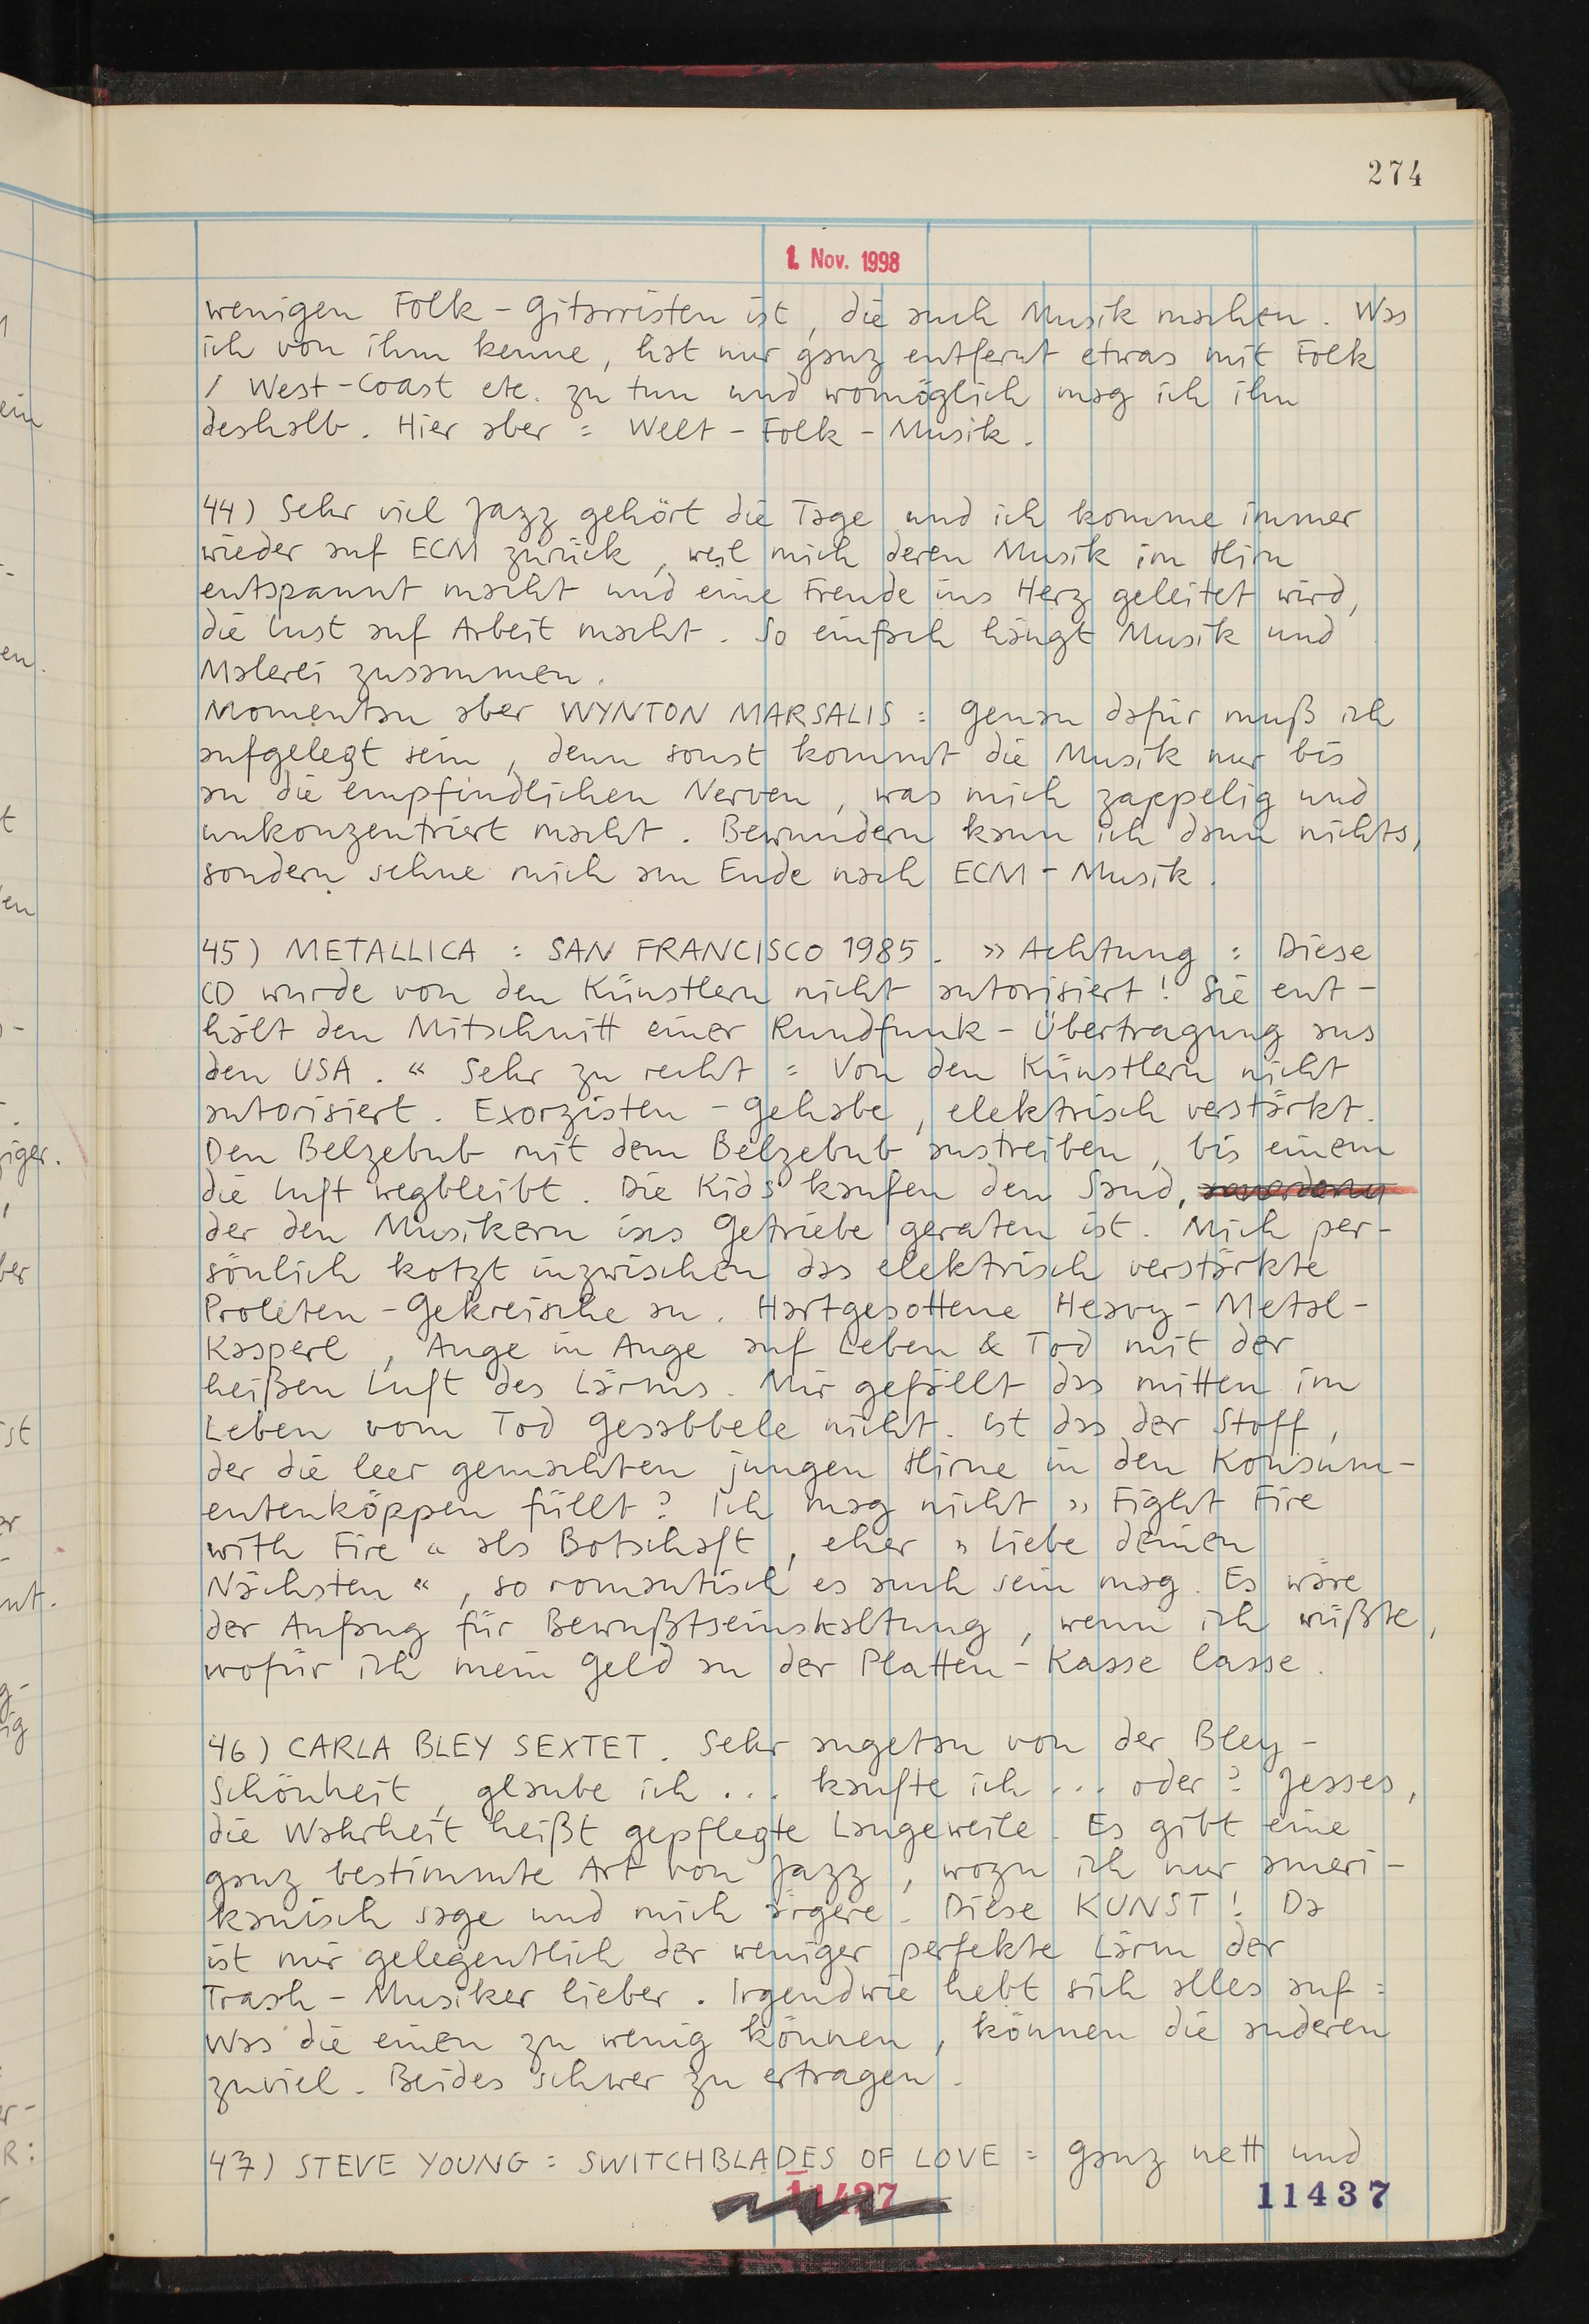 274
1. Nov. 1998
wenigen Folk-Gitarristen ist, die auch Musik machen. Was
ich von ihm kenne, hat nur ganz entfernt etwas mit Folk
/ West-Coast etc. zu tun und womöglich mag ich ihn
deshalb. Hier aber = Welt-Folk-Musik.
44) Sehr viel Jazz gehört die Tage und ich komme immer
wieder auf ECM zurück, weil mich deren Musik im Hirn
entspannt macht und eine Freude ins Herz geleitet wird,
die Lust auf Arbeit macht. So einfach hängt Musik und
Malerei zusammen.
Momentan aber WYNTON MARSALIS = genau dafür muß ich
aufgelegt sein, denn sonst kommt die Musik nur bis
an die empfindlichen Nerven, was mich zappelig und
unkonzentriert macht. Bewundern kann ich dann nichts,
sondern sehne mich am Ende nach ECM-Musik.
45) METALLICA : SAN FRANCISCO 1985. »Achtung : Diese
CD wurde von den Künstlern nicht autorisiert! Sie ent-
hält den Mitschnitt einer Rundfunk-Übertragung aus
den USA.« Sehr zu recht = Von den Künstlern nicht
autorisiert. Exorzisten-Gehabe, elektrisch verstärkt.
Den Belzebub mit dem Belzebub austreiben, bis einem
die Luft wegbleibt. Die Kids kaufen den Sand,
der den Musikern ins Getriebe geraten ist. Mich per-
sönlich kotzt inzwischen das elektrisch verstärkte
Proleten-Gekreische an. Hartgesottene Heavy-Metal-
Kasperl, Auge in Auge auf Leben & Tod mit der
heißen Luft des Lärms. Mir gefällt das mitten im
Leben vom Tod Gesabbele nicht. Ist das der Stoff,
der die leer gemachten jungen Hirne in den Konsum-
entenköppen füllt? Ich mag nicht »Fight Fire
with Fire« als Botschaft, eher »Liebe deinen
Nächsten«, so romantisch es auch sein mag. Es wäre
der Anfang für Bewußtseinshaltung, wenn ich wüßte,
wofür ich mein Geld an der Platten-Kasse lasse.
46) CARLA BLEY SEXTET. Sehr angetan von der Bley-
Schönheit, glaube ich ... kaufte ich ... oder? Jesses,
die Wahrheit heißt gepflegte Langeweile. Es gibt eine
ganz bestimmte Art von Jazz, wozu ich nur ameri-
kanisch sage und mich ärgere. Diese KUNST! Da
ist mir gelegentlich der weniger perfekte Lärm der
Trash-Musiker lieber. Irgendwie hebt sich alles auf =
Was die einen zu wenig können, können die anderen
zuviel. Beides schwer zu ertragen.
47) STEVE YOUNG = SWITCHBLADES OF LOVE = ganz nett und
11437
11437